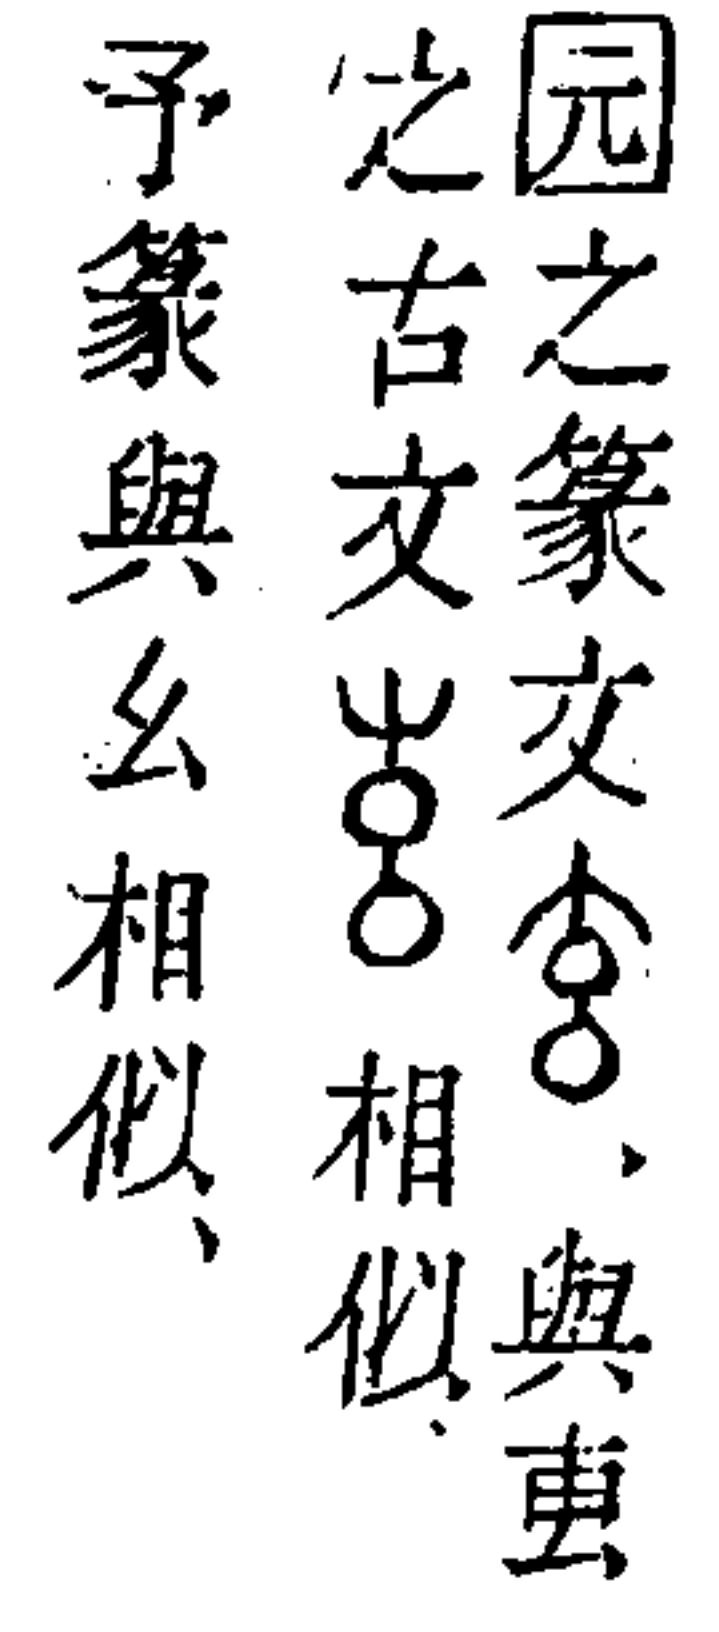 元之篆文、與叀
之古文相似、
予篆與幺相似、